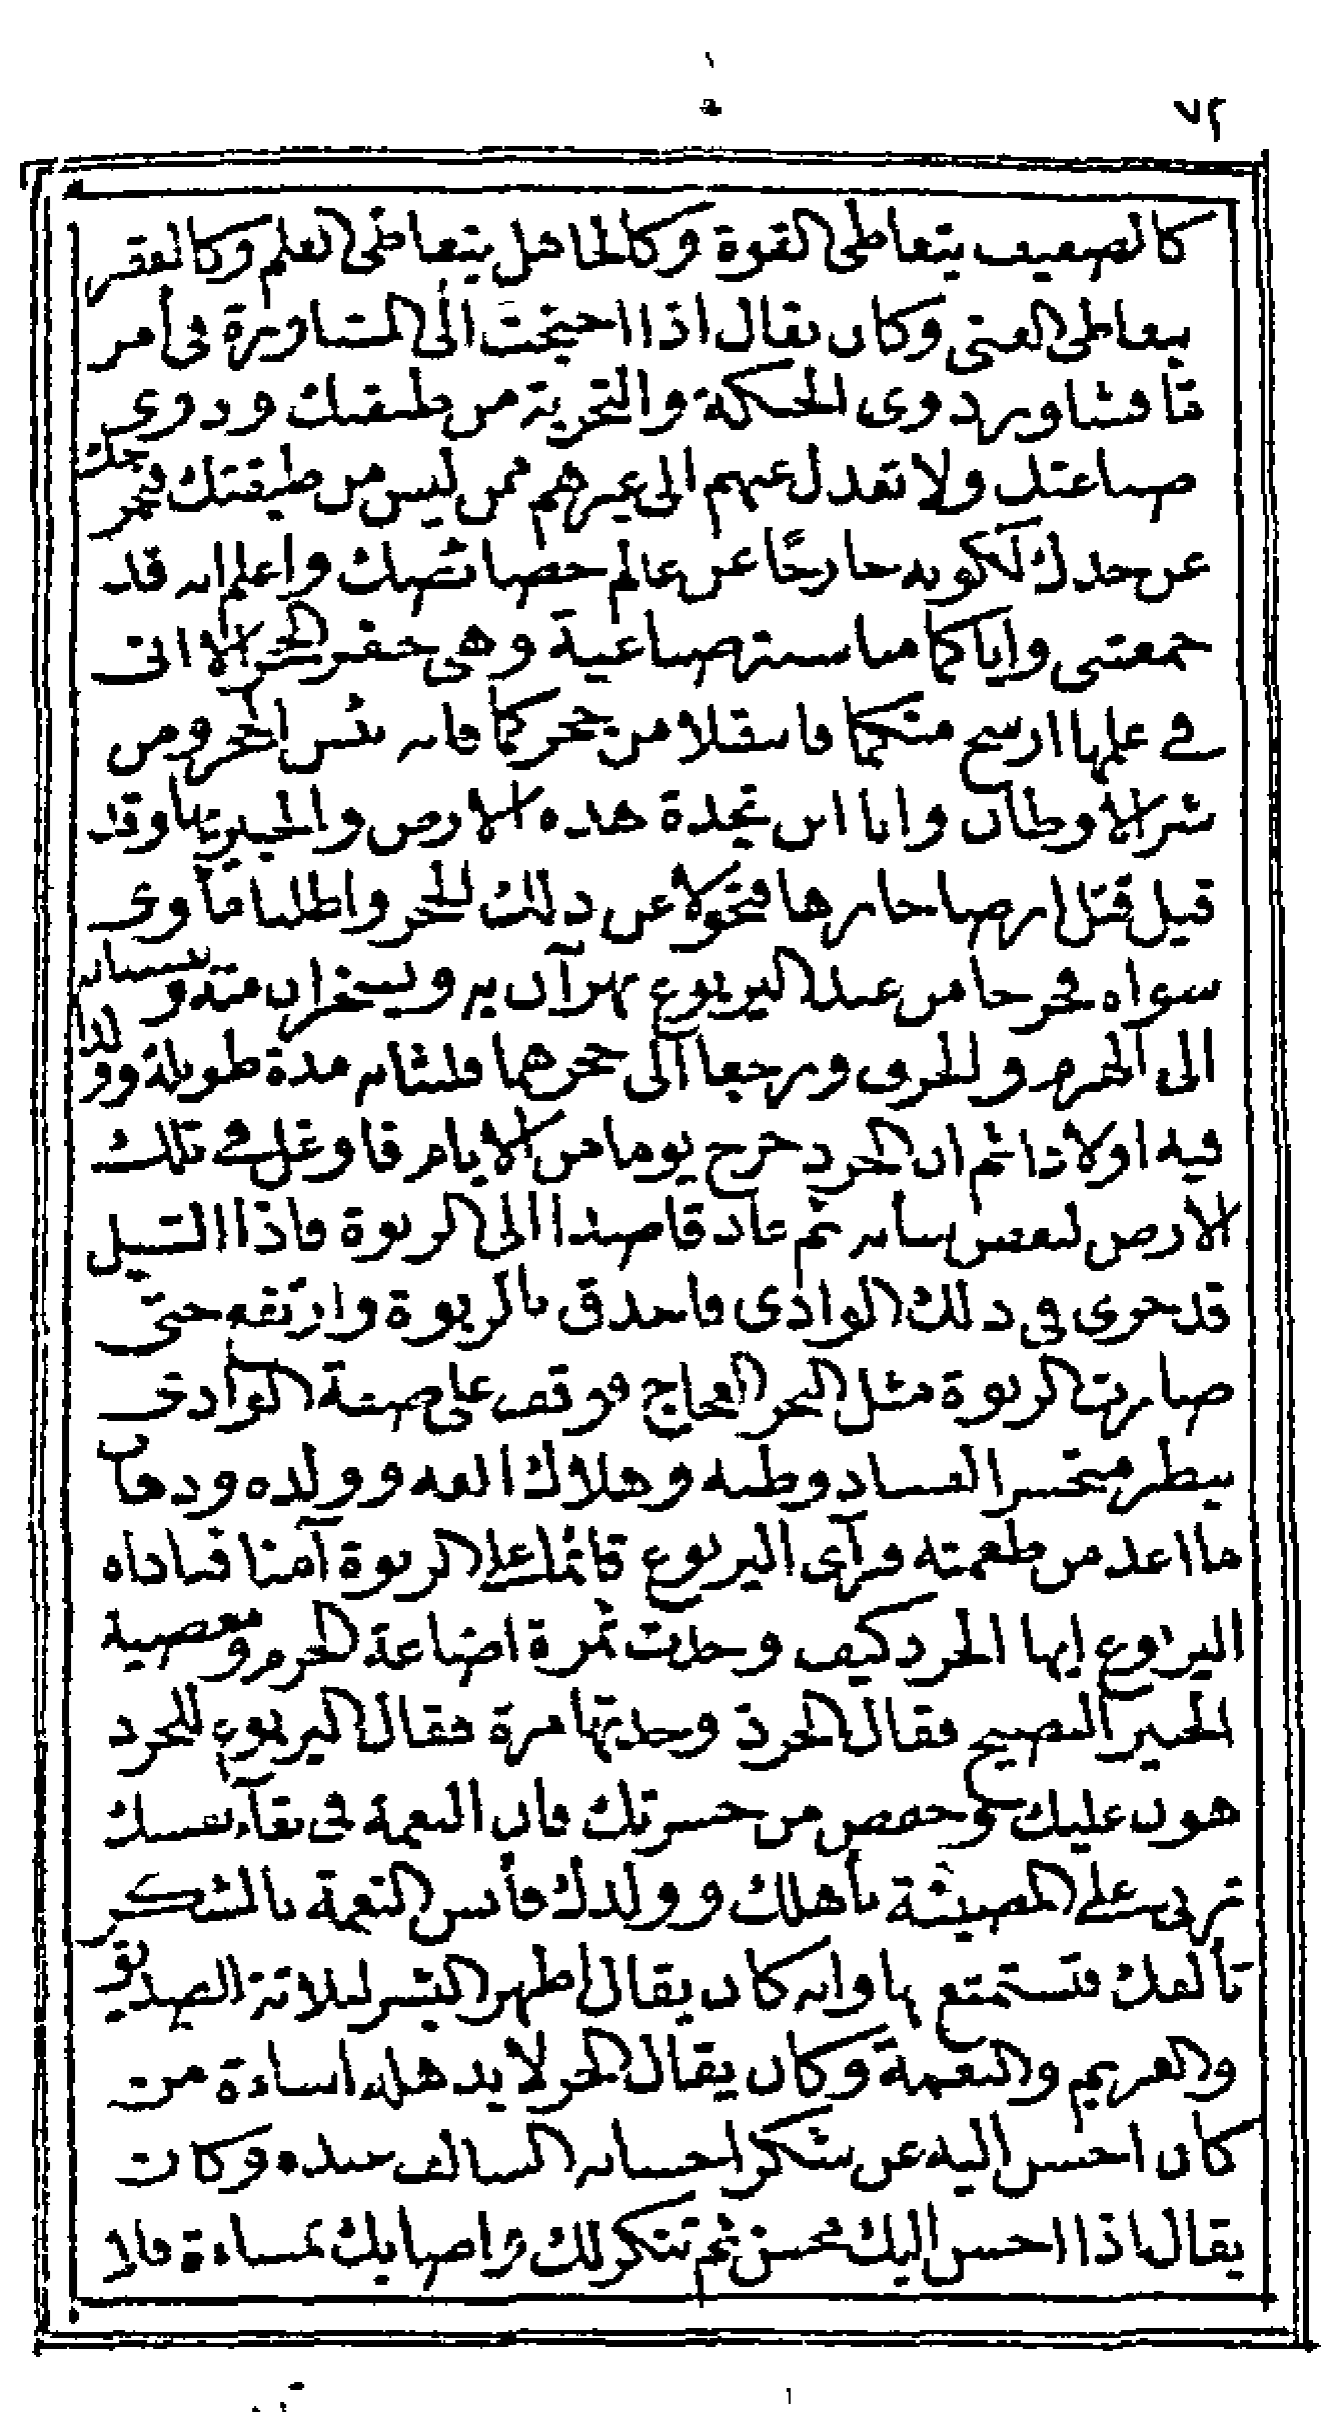 ٧٢
كالضعيف يتعاطى القوة وكالجاهل يتعاطى العلم وكالفقير
يتعاطى الغنى وكان يقال اذا احتجت الى المشاورة في أمر
ما فشاور ذوى الحكمة والتجربة من طبقتك وذوى
صناعتك ولا تعدل عنهم الى غيرهم ممن ليس من طبقتك فيخرجك
عن حدك لكونه خارجًا عن عالم خصائصك واعلم انه قد
جمعتني واياكما مناسبة صناعية وهى حفر الجحر الا انى
في علمها ارسخ منكما فانتقلا من جحركما فانه بئس الجحر ومن
شر الاوطان وانا ابن بجدة هذه الارض والخبير بها وقد
قيل قتل ارضا خابرها فتحولا عن ذلك الجحر واطلبا مأوى
سواه فخرجا من عند اليربوع يهزآن به ويسخران منه وينسبانه
الى الهرم والخرف ورجعا الى جحرهما فلبثا به مدة طويلة وولدا
فيه اولادا ثم ان الجرذ خرج يوما من الايام فاوغل في تلك
الارض لبعض شأنه ثم عاد قاصدا الى الربوة فاذا السيل
قد جرى في ذلك الوادى فاحدق بالربوة وارتفع حتى
صارت الربوة مثل البحر العجاج فوقف على ضفة الوادى
ينظر متحسرا لفساد وطنه وهلاك الفه وولده وذهاب
ما اعد من طعمته فرآى اليربوع قائما على الربوة آمنا فناداه
اليربوع ايها الجرذ كيف وجدت ثمرة اضاعة الحزم ومعصية
الخبير النصيح فقال الجرذ وجدتها مرة فقال اليربوع للجرذ
هون عليك وخفض من حسرتك فان النعمة في بقاء نفسك
تربى على المصيبة بأهلك وولدك فأنس النعمة بالشكر
تألفك فتستمتع بها وانه كان يقال اظهر البشر لثلاثة الصديق
والغريم والنعمة وكان يقال الحر لا يذهله اساءة من
كان احسن اليه عن شكر احسانه السالف عنده وكان
يقال اذا احسن اليك محسن ثم تنكر لك واصابك بمساءة فلا